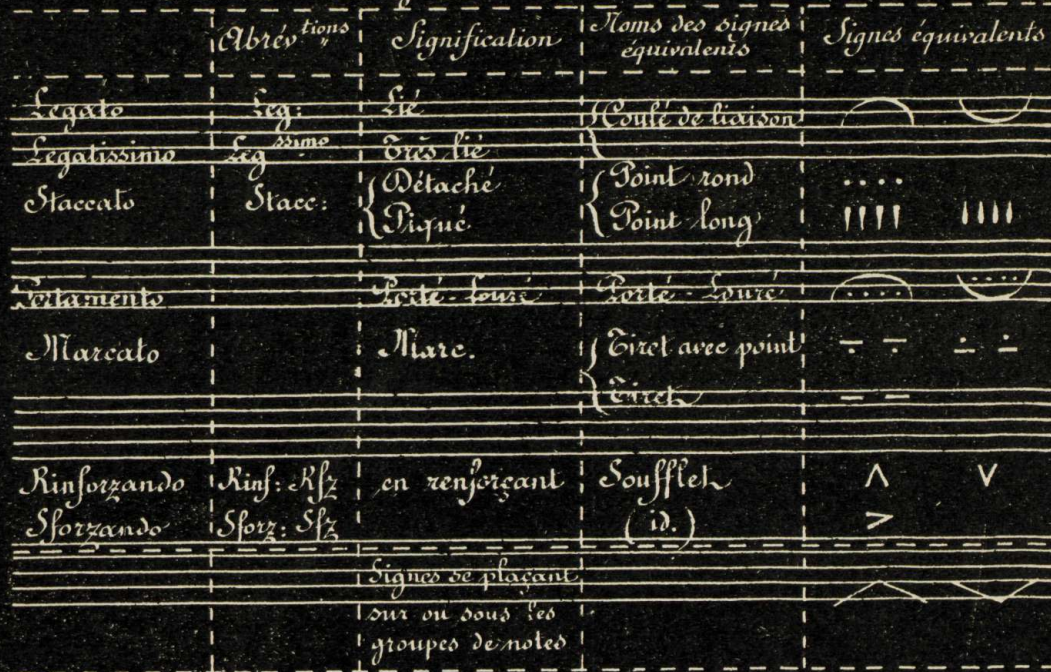 Abrévtions Signification Noms des signes équivalents Signes équivalents
Legato Leg: Lié Coulé de liaison
Legatissimo Legssimo Très lié
Staccato Stacc: Détaché Point rond
Piqué Point long
Portamento Porté-Louré Porté-Louré
Marcato Marc. Tiret avec point
Tiret
Rinforzando Rinf: Rfz en renforçant Soufflet
Sforzando Sforz: Sfz (id.)
Signes se plaçant
sur ou sous les
groupes de notes